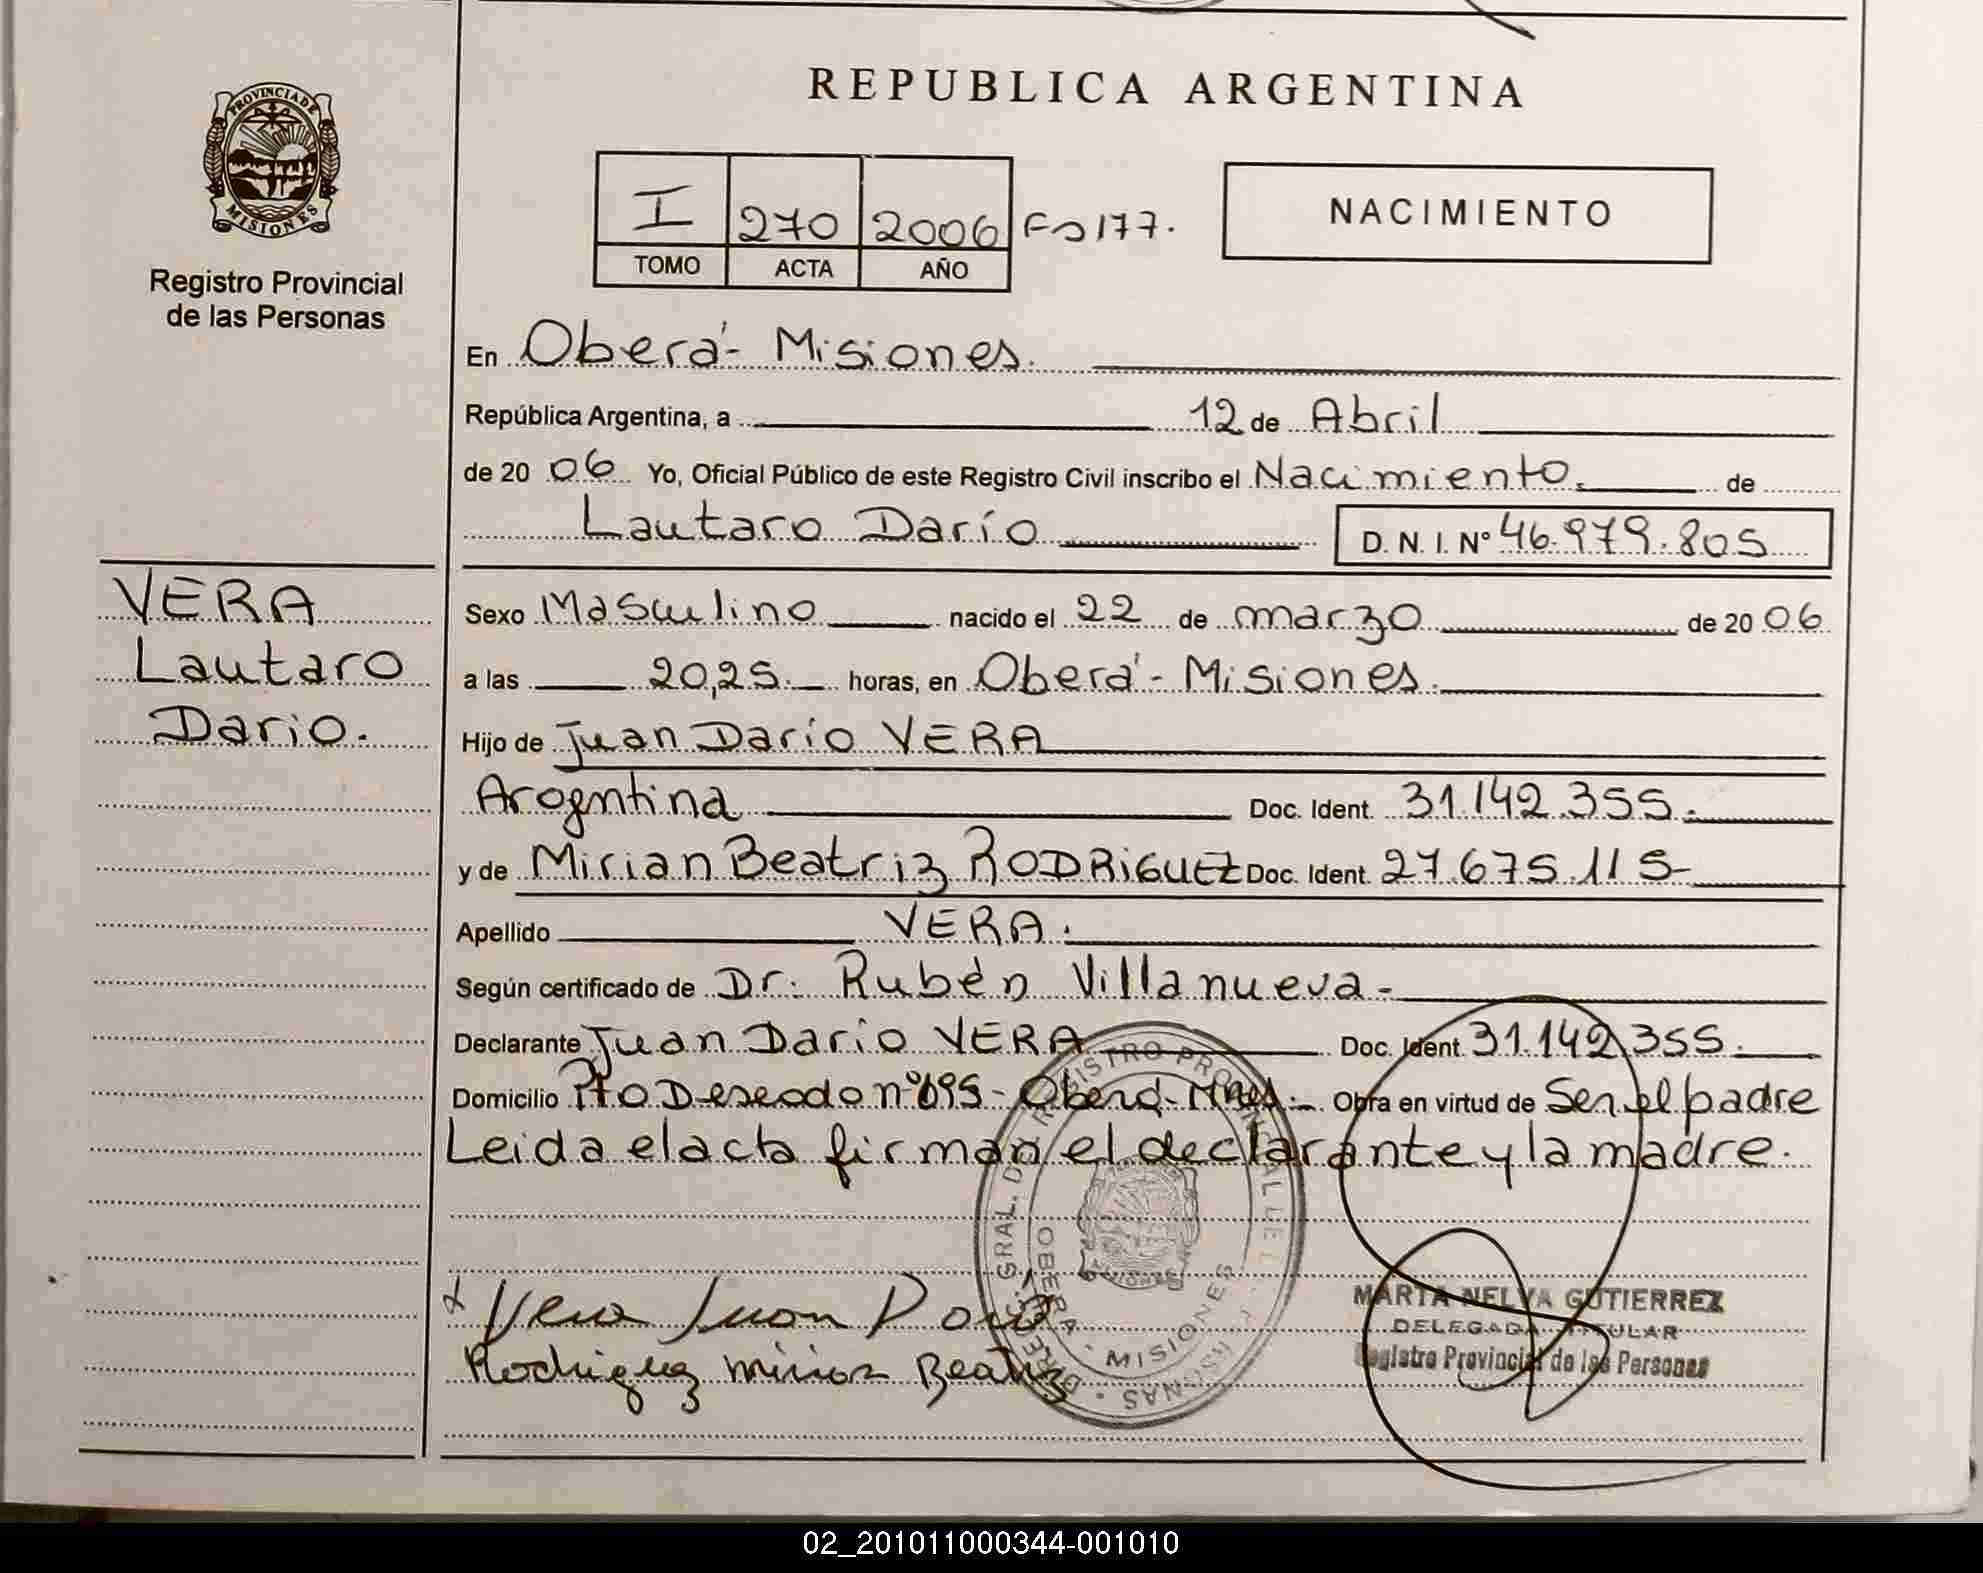 REPUBLICA ARGENTINA
PROVINCIA DE
MISIONES
Registro Provincial
de las Personas
I 270 2006 Fo 177.
TOMO ACTA AÑO
NACIMIENTO
En Oberá - Misiones.
República Argentina, a 12 de Abril
de 20 06 Yo, Oficial Público de este Registro Civil inscribo el Nacimiento. de
Lautaro Darío D. N. I. N° 46.979.805
VERA
Lautaro
Dario.
Sexo Masculino nacido el 22 de marzo de 20 06
a las 20,25. horas, en Oberá - Misiones.
Hijo de Juan Darío VERA
Arogentina Doc. Ident. 31.142.355.
y de Mirian Beatriz RODRIGUEZ Doc. Ident. 27.675.115-
Apellido VERA.
Según certificado de Dr. Rubén Villanueva-
Declarante Juan Darío VERA Doc. Ident. 31.142.355.
Domicilio Pto Deseado n° 695 - Oberá - Mnes. Obra en virtud de Ser el padre
Leida el acta firman el declarante y la madre.
Vera Juan Dario
Rodriguez Mirian Beatriz
OBERA - MISIONES
MARTA NELVA GUTIERREZ
DELEGADA TITULAR
Registro Provincial de las Personas
02_201011000344-001010